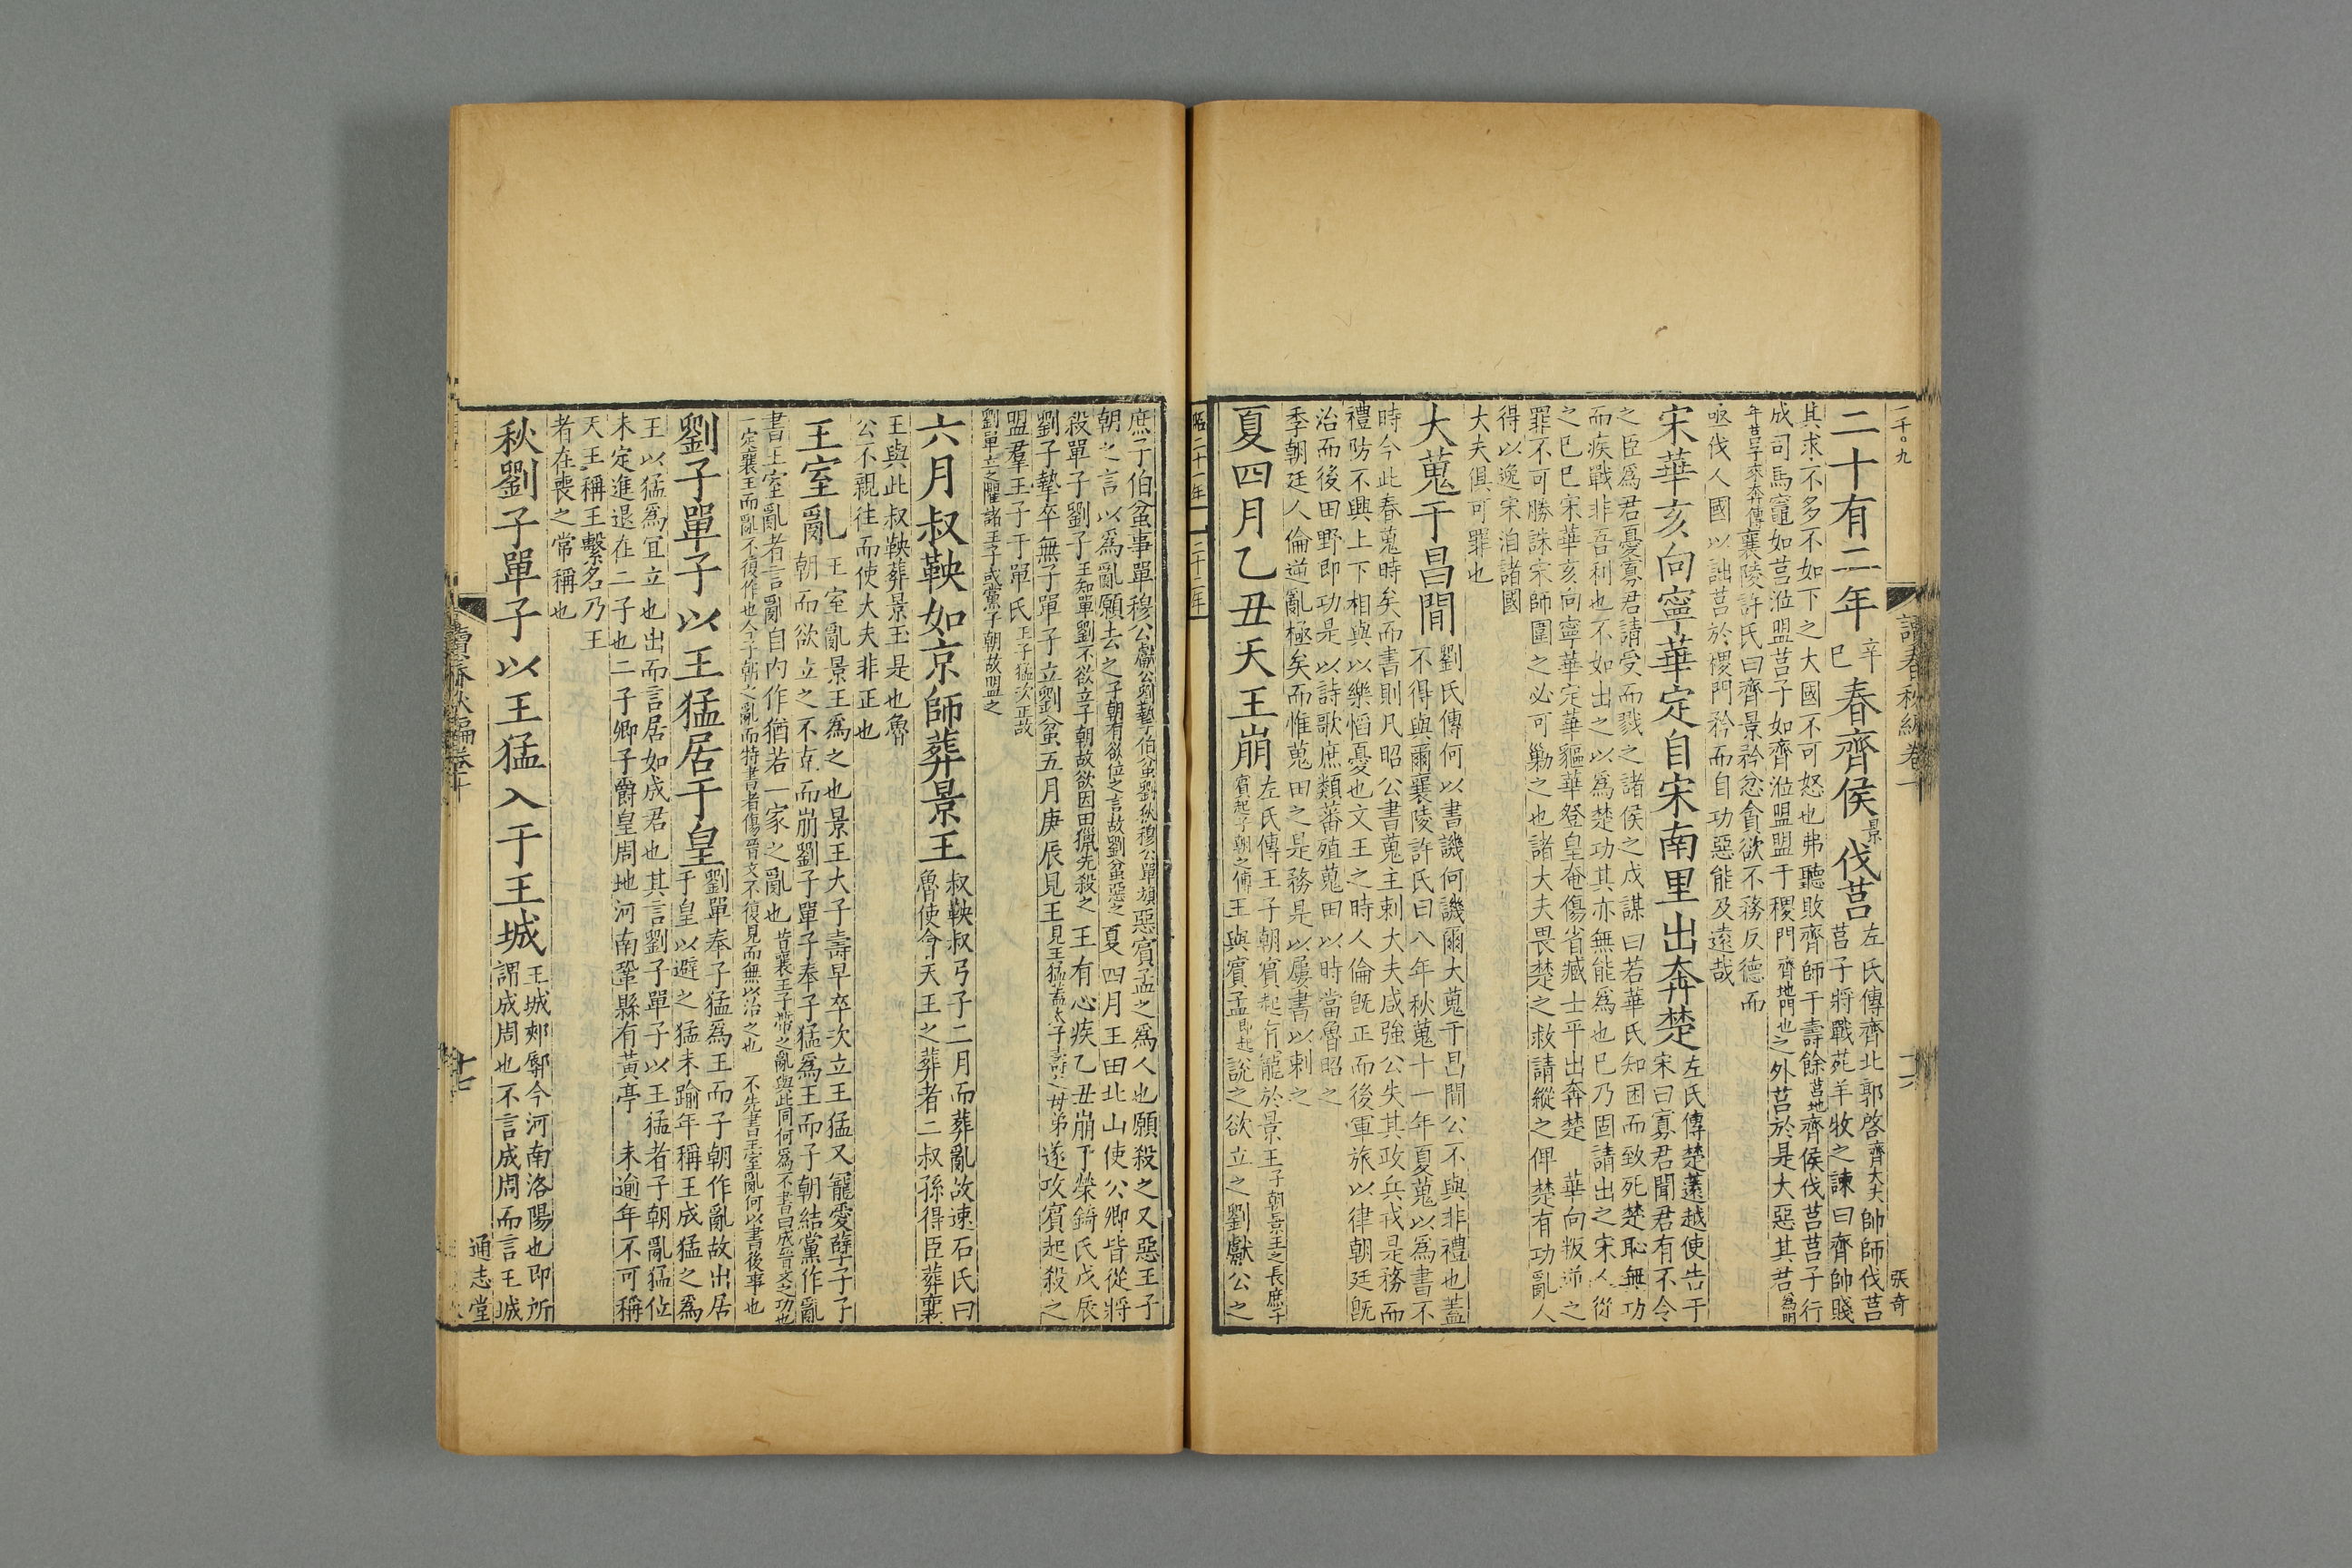 一千〇九
讀春秋編卷十
十六
張奇
二十有二年辛巳春齊侯景伐莒
左氏傳齊北郭啓齊大夫帥師伐莒
莒子將戰苑羊牧之諫曰齊帥賤
其求不多不如下之大國不可怒也弗聽敗齊師于壽餘莒地齊侯伐莒莒子行
成司馬竈如莒涖盟莒子如齊涖盟盟于稷門齊地門也之外莒於是大惡其君爲明
年莒子來奔傳襄陵許氏曰齊景矜忿貪欲不務反德而
亟伐人國以詘莒於稷門矜而自功惡能及遠哉
宋華亥向寧華定自宋南里出奔楚
左氏傳楚薳越使告于
宋曰寡君聞君有不令
之臣爲君憂寡君請受而戮之諸侯之戍謀曰若華氏知困而致死楚恥無功
而疾戰非吾利也不如出之以爲楚功其亦無能爲也已乃固請出之宋人從
之已巳宋華亥向寧華定華貙華登皇奄傷省臧士平出奔楚 華向叛逆之
罪不可勝誅宋師圍之必可勦之也諸大夫畏楚之救請縱之俾楚有功亂人
得以逸宋洎諸國
大夫俱可罪也
大蒐于昌間
劉氏傳何以書譏何譏爾大蒐于昌間公不與非禮也蓋
不得與爾襄陵許氏曰八年秋蒐十一年夏蒐以爲書不
時今此春蒐時矣而書則凡昭公書蒐主刺大夫咸強公失其政兵戎是務而
禮防不興上下相與以樂慆憂也文王之時人倫旣正而後軍旅以律朝廷旣
治而後田野即功是以詩歌庶類蕃殖蒐田以時當魯昭之
季朝廷人倫逆亂極矣而惟蒐田之是務是以屢書以刺之
夏四月乙丑天王崩
左氏傳王子朝賓起有寵於景王子朝景王之長庶子
賓起子朝之傅王與賓孟即起說之欲立之劉獻公之
昭二十一年 二十二年
庶子伯蚠事單穆公獻公劉摯子伯蚠劉狄穆公單旗惡賓孟之爲人也願殺之又惡王子
朝之言以爲亂願去之子朝有欲位之言故劉蚠惡之夏四月王田北山使公卿皆從將
殺單子劉子王知單劉不欲立子朝故欲因田獵先殺之王有心疾乙丑崩于榮錡氏戊辰
劉子摯卒無子單子立劉蚠五月庚辰見王見王猛遂攻賓起殺之
盟羣王子于單氏王子猛次正故
劉單立之懼諸王子或黨子朝故盟之
六月叔鞅如京師葬景王
叔鞅叔弓子二月而葬亂故速石氏曰
魯使會天王之葬者二叔孫得臣葬襄
王與此叔鞅葬景王是也魯
公不親往而使大夫非正也
王室亂
王室亂景王爲之也景王大子壽早卒次立王猛又寵愛孽子子
朝而欲立之不克而崩劉子單子奉子猛爲王而子朝結黨作亂
書王室亂者言亂自內作猶若一家之亂也昔襄王子帶之亂與此同何爲不書曰成晉文之功也
一定襄王而亂不復作也今子朝之亂而特書者傷晉文不復見而無以治之也 不先書王室亂何以書後事也
劉子單子以王猛居于皇
劉單奉子猛爲王而子朝作亂故出居
于皇以避之猛未踰年稱王成猛之爲
王以猛爲宜立也出而言居如成君也其言劉子單子以王猛者子朝亂猛位
未定進退在二子也二子卿子爵皇周地河南鞏縣有黃亭 未逾年不可稱
天王稱王繫名乃王
者在喪之常稱也
秋劉子單子以王猛入于王城
王城郟鄏今河南洛陽也即所
謂成周也不言成周而言王城
讀春秋編卷十
十七
通志堂